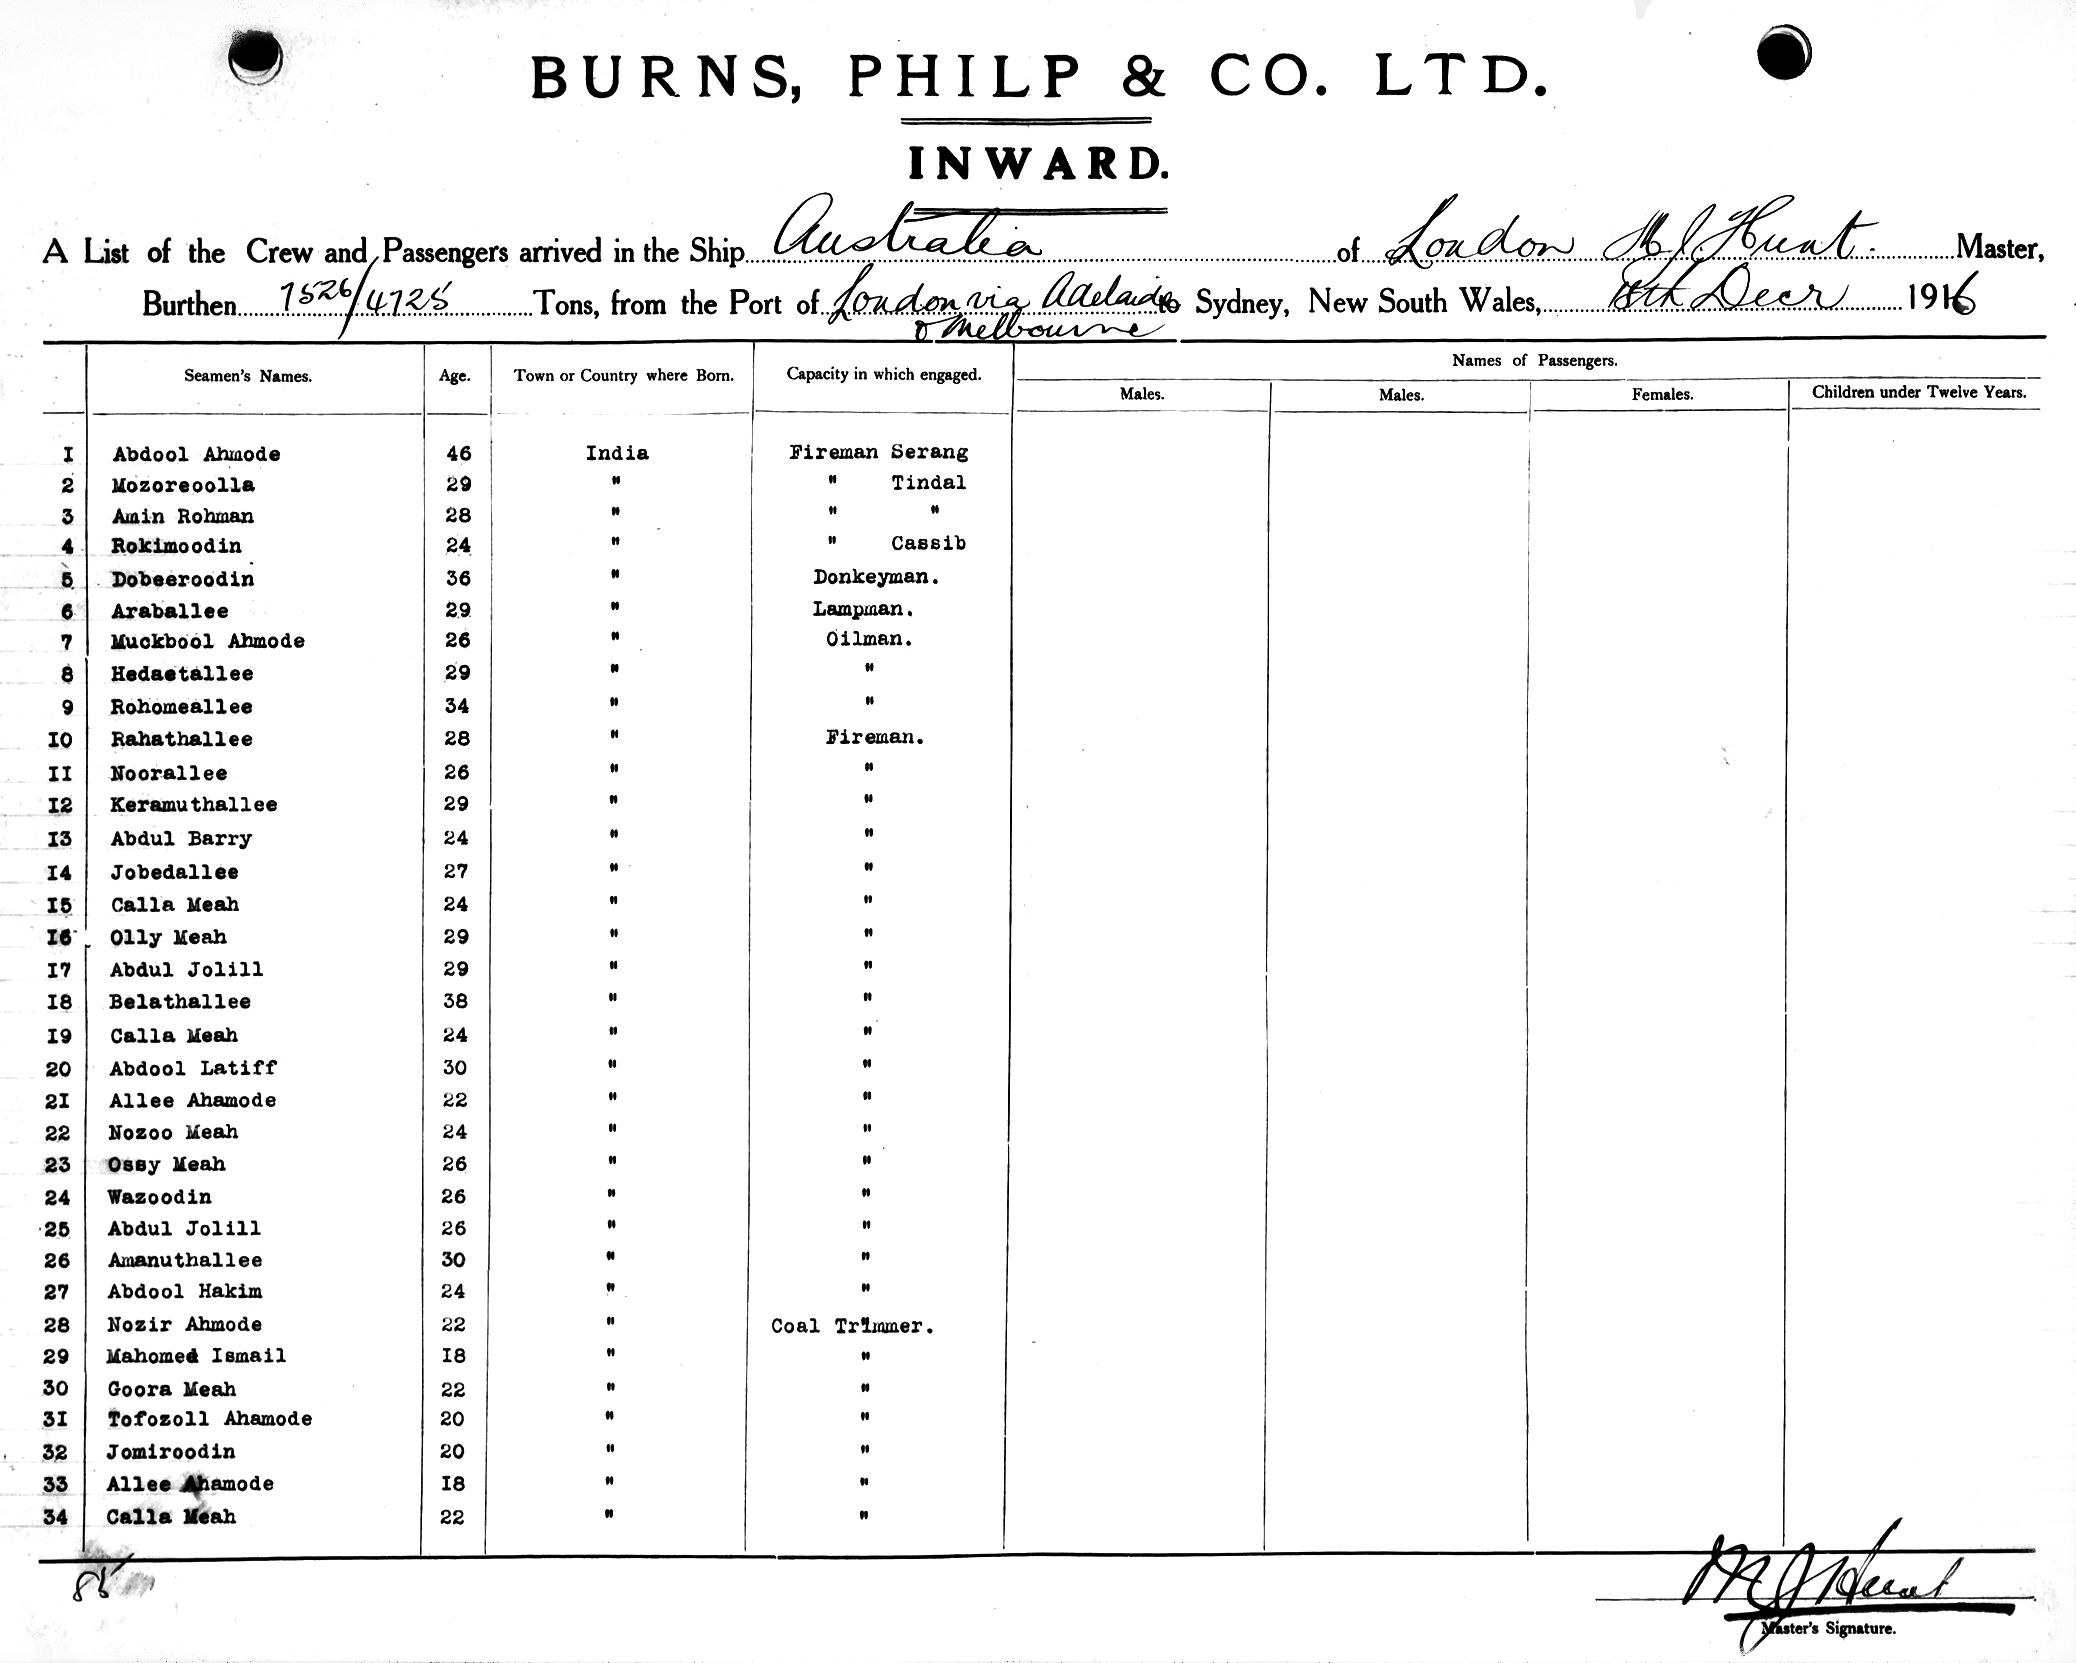 BURNS, PHILP & CO. LTD.
INWARD.
A List of the Crew and Passengers arrived in the Ship Australia of London M J. Hunt. Master,
Burthen 7526/4725 Tons, from the Port of London via Adelaide to Sydney, New South Wales, Decr 1916
& Melbourne
Names of Passengers.
Seamen's Names. Age. Town or Country where Born. Capacity in which engaged. Males. Males. Females. Children under Twelve Years.
I Abdool Ahmode 46 India Fireman Serang
2 Mozoreoolla 29 " " Tindal
3 Amin Rohman 28 " " "
4 Rokimoodin 24 " " Cassib
5 Dobeeroodin 36 " Donkeyman.
6 Araballee 29 " Lampman.
7 Muckbool Ahmode 26 " Oilman.
8 Hedaetallee 29 " "
9 Rohomeallee 34 " "
IO Rahathallee 28 " Fireman.
II Noorallee 26 " "
I2 Keramuthallee 29 " "
I3 Abdul Barry 24 " "
I4 Jobedallee 27 " "
I5 Calla Meah 24 " "
I6 Olly Meah 29 " "
I7 Abdul Jolill 29 " "
I8 Belathallee 38 " "
I9 Calla Meah 24 " "
20 Abdool Latiff 30 " "
2I Allee Ahamode 22 " "
22 Nozoo Meah 24 " "
23 Ossy Meah 26 " "
24 Wazoodin 26 " "
25 Abdul Jolill 26 " "
26 Amanuthallee 30 " "
27 Abdool Hakim 24 " "
28 Nozir Ahmode 22 " Coal Trimmer.
29 Mahomed Ismail I8 " "
30 Goora Meah 22 " "
3I Tofozoll Ahamode 20 " "
32 Jomiroodin 20 " "
33 Allee Ahamode I8 " "
34 Calla Meah 22 " "
85
M J Hunt
Master's Signature.